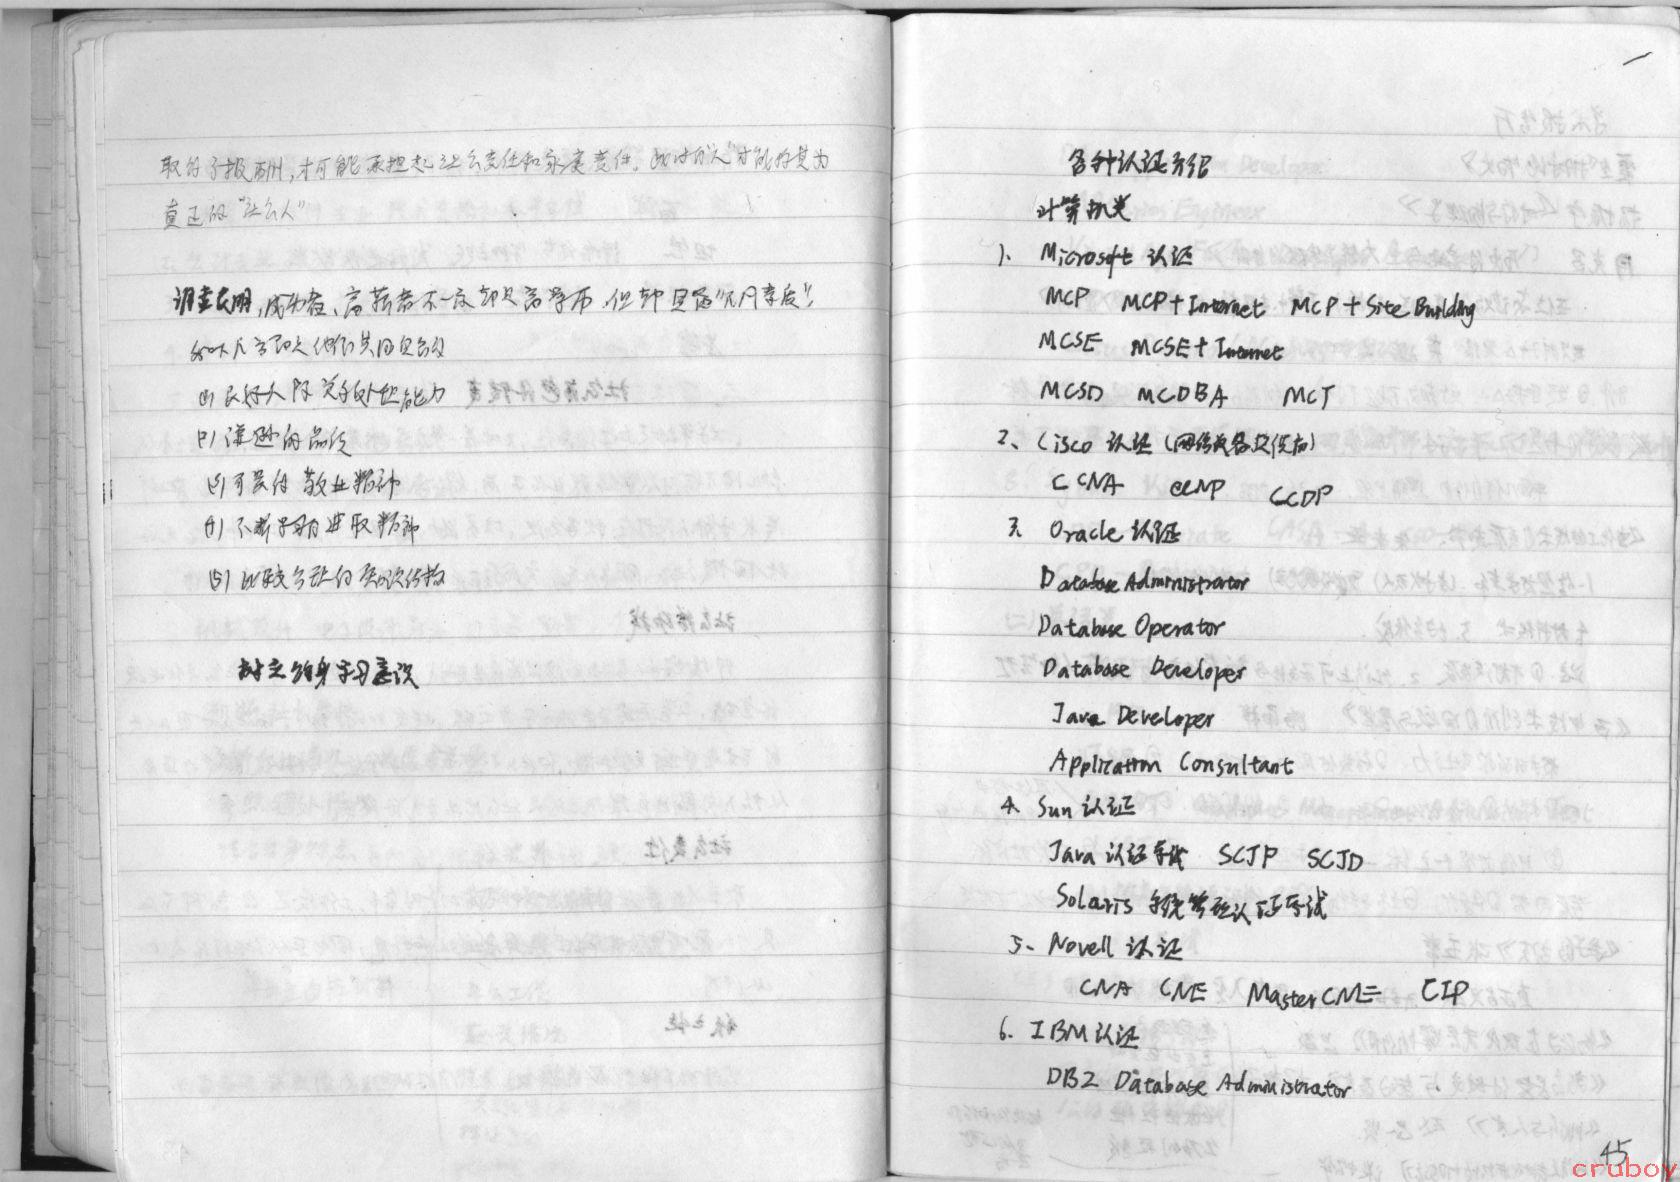 取得了报酬,才可能承担起社会责任和家庭责任。此时的"人"才能称其为
真正的"社会人"
调查表明,成功者、高薪者不一定都是高学历,但都具备"几个素质":
如下几方面是他们共同具备的
(1) 良好人际关系的处理能力
(2) 谦逊的品位
(3) 可贵的敬业精神
(4) 不断学习进取精神
(5) 比较全面的知识结构
树立终身学习意识
各种认证介绍
计算机类
1、Microsoft 认证
MCP MCP+Internet MCP+Site Building
MCSE MCSE+Internet
MCSD MCDBA MCT
2、Cisco 认证
CCNA CCNP CCDP
3、Oracle 认证
Database Administrator
Database Operator
Database Developer
Java Developer
Application Consultant
4、Sun 认证
Java 认证考试 SCJP SCJD
Solaris 系统管理认证考试
5、Novell 认证
CNA CNE Master CNE CIP
6、IBM 认证
DB2 Database Administrator
45
cruboy